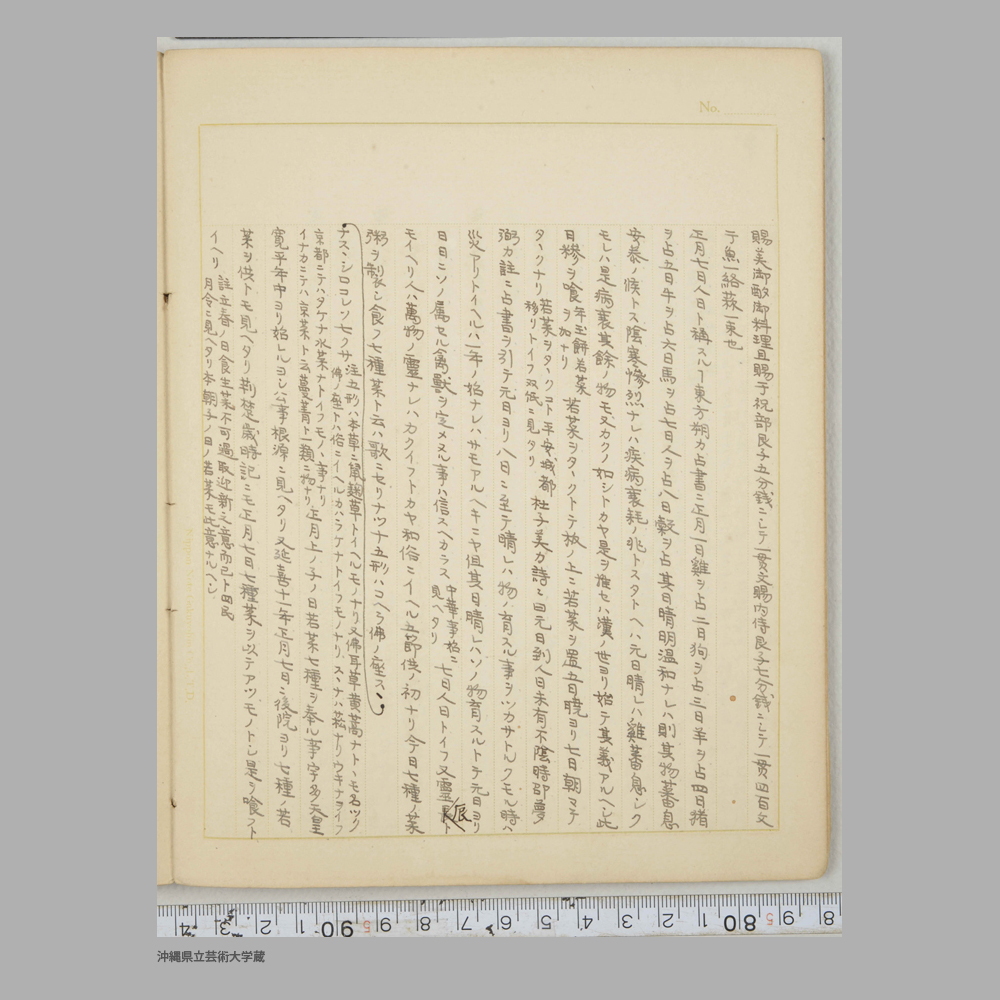 No.
賜美御酘御料理且賜于祝部良子五分錢ニシテ一貫文賜内侍良子七分錢ニシテ一貫四百文
テ魚一絡蓀一束也
正月七日人日ト稱スルヿ東方朔カ占書ニ正月一日雞ヲ占二日狗ヲ占三日羊ヲ占四日猪
ヲ占五日牛ヲ占六日馬ヲ占七日人ヲ占八日穀ヲ占其日晴明温和ナレハ則其物蕃息
安泰ノ候トス陰寒惨烈ナレハ疾病衰耗ノ兆トスタトヘハ元日晴レハ雞蕃息シク
モレハ是病衰其餘ノ物モ又カクノ如シトカヤ是ヲ推セハ漢ノ世ヨリ始テ其義アルヘシ此
日糝ヲ喰 年玉餅若菜ヲ加ナリ 若菜ヲタヽクトテ板ノ上ニ若菜ヲ置五日暁ヨリ七日朝マテ
タヽクナリ 若菜ヲタヽクコト平安城都移リトイフ双低ニ見タリ 杜子美カ詩ニ四元日到人日未有不陰時邵夢
弼カ註ニ占書ヲ引テ元日ヨリ八日ニ至テ晴レハ物ノ育スル事ヲツカサトルクモル時ハ
災アリトイヘルハ一年ノ始ナレハサモアルヘキニヤ但其日晴レハソノ物育スルトテ元日ヨリ
日日ニソノ属セル禽獸ヲ定メヌル事ハ信スヘカラス 中華事始ニ見ヘタリ 七日人日トイフ又靈長ト
辰
モイヘリ人ハ萬物ノ靈ナレハカクイフトカヤ和俗ニイヘル五節供ノ初ナリ今日七種ノ菜
粥ヲ製シ食フ七種菜ト云ハ歌ニセリナツナ五形ハコヘラ佛ノ座スヽ
ナスヽシロコレソセクサ 注五形ハ本草ニ鼠麹草トイヘルモノナリ又佛耳草黄蒿ナトヽモ名ツク
佛ノ座トハ俗ニイヘルカハラケナトイフモノナリスヽナハ菘ナリウキナヲイフ
京都ニテハタケナ水菜ナトイフモノヽ事ナリ
イナカニテハ京菜ト云蔓菁ト一類ニ物ナリ 正月上ノ子ノ日若菜七種ヲ奉ル事宇多天皇
寛平年中ヨリ始レルヨシ公事根源ニ見ヘタリ又延喜十一年正月七日ニ後院ヨリ七種ノ若
菜ヲ供トモ見ヘタリ荊楚歳時記ニモ正月七日七種菜ヲ以テアツモノトシ是ヲ喰フト
イヘリ 註立春ノ日食生菜不可過取迎新之意而已ト四民
月令ニ見ヘタリ本朝子ノ日ノ若菜モ此意ナルヘシ
沖縄県立芸術大学蔵